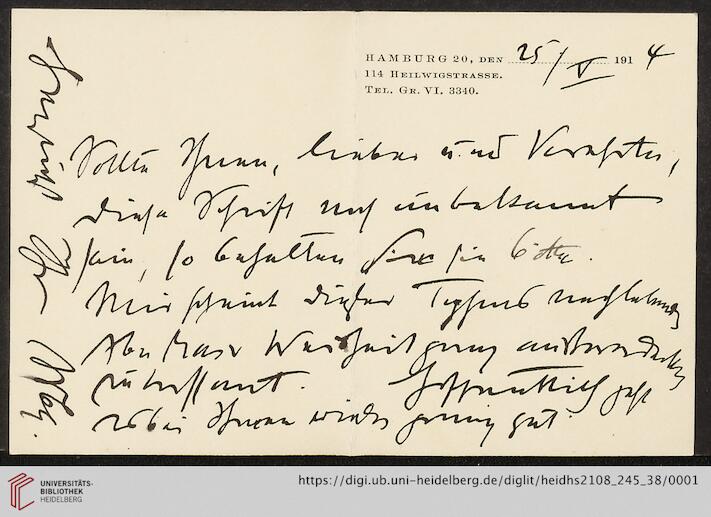 HAMBURG 20, DEN 25/V 1914
114 HEILWIGSTRASSE.
TEL. GR. VI. 3340.
Sollte Ihnen, lieber und Verehrter,
diese Schrift noch unbekannt
sein, so behalten Sie sie bitte.
Mir scheint dieser Typus nachlebender
Weisheit ganz ausserordentlich
interessant. Hoffentlich geht
es bei Ihnen wieder ganz gut.
Ihr
UNIVERSITÄTS-
BIBLIOTHEK
HEIDELBERG
https://digi.ub.uni-heidelberg.de/diglit/heidhs2108_245_38/0001